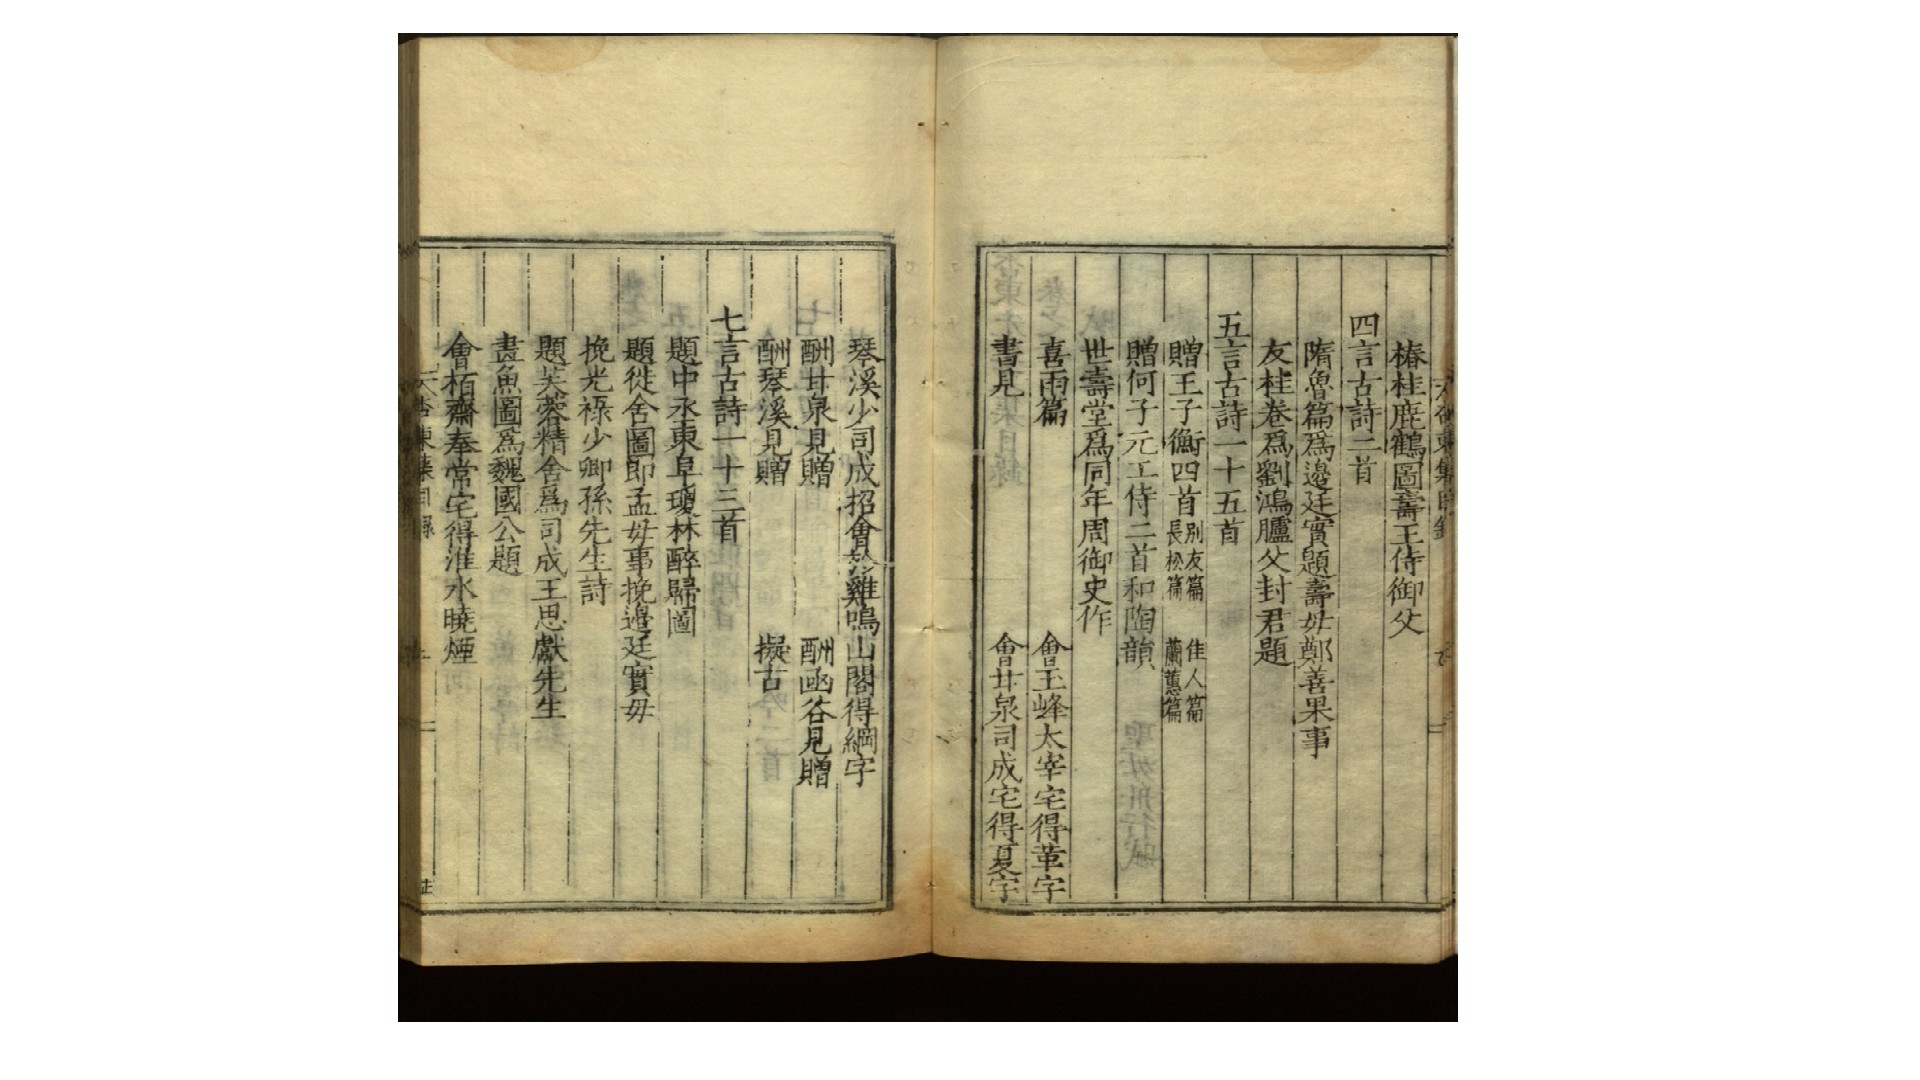 椿桂鹿鶴圖壽王侍御父
四言古詩二首
隋魯篇爲邊廷實題壽毋鄭善果事
友桂卷爲劉鴻臚父封君題
五言古詩一十五首
贈王子衡四首 別友篇 佳人篇 長松篇 蘭蕙篇
贈何子元工侍二首和陶韻
世壽堂爲同年周御史作
喜雨篇 會玉峰太宰宅得葷字
書見 會甘泉司成宅得夏字
琴溪少司成招會於雞鳴山閣得綱字
酬甘泉見贈 酬函谷見贈
酬琴溪見贈 擬古
七言古詩一十三首
題中丞東阜瓊林醉歸圖
題徙舍圖即孟毋事挽邊廷實毋
挽光祿少卿孫先生詩
題芙蓉精舍爲司成王思獻先生
畫魚圖爲魏國公題
會栢齋奉常宅得淮水曉煙